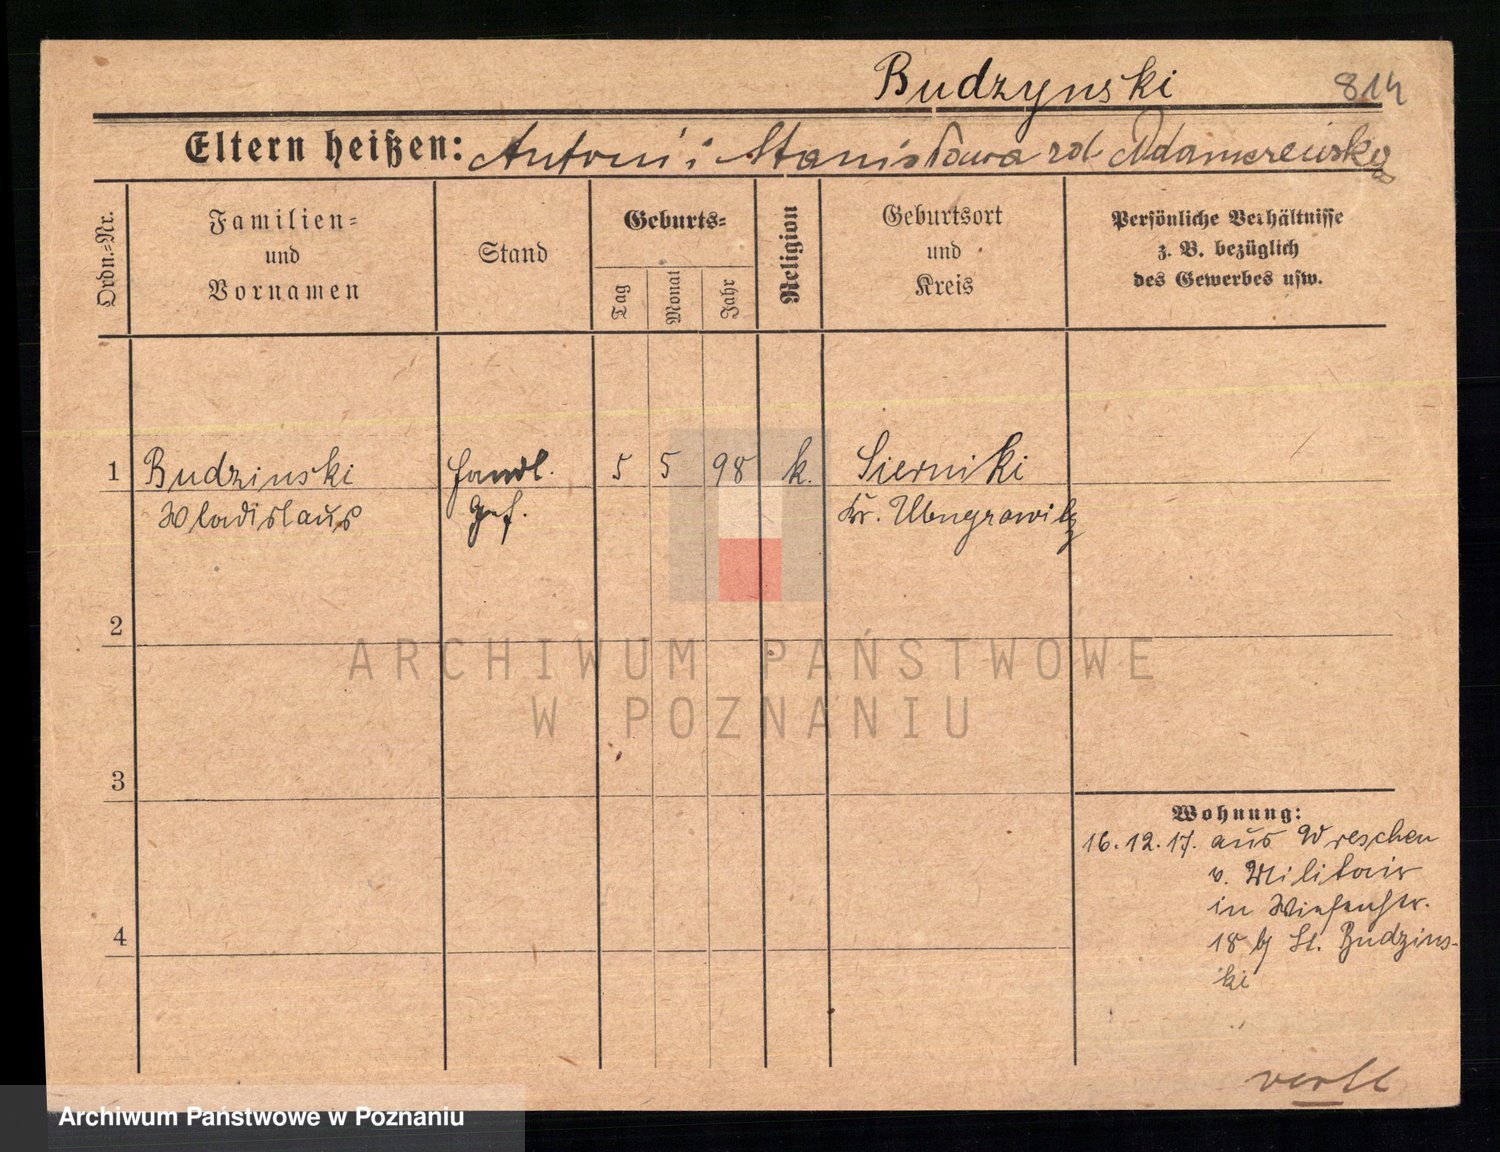 Budzynski 814
Eltern heißen: Antoni i Stanisława zd. Adamczewsky
Ordn.-Nr.
Familien-
und
Vornamen
Stand
Geburts-
Tag
Monat
Jahr
Religion
Geburtsort
und
Kreis
Persönliche Verhältnisse
z. B. bezüglich
des Gewerbes usw.
1 Budzinski Handl. 5 5 98 k. Sierniki
Wladislaus Gef. Kr. Wongrowitz
2
3
4
Wohnung:
16.12.17. aus Wreschen
v. Militair
in Wiesenstr.
18 b/ St. Budzins-
ki
ARCHIWUM PAŃSTWOWE
W POZNANIU
Archiwum Państwowe w Poznaniu